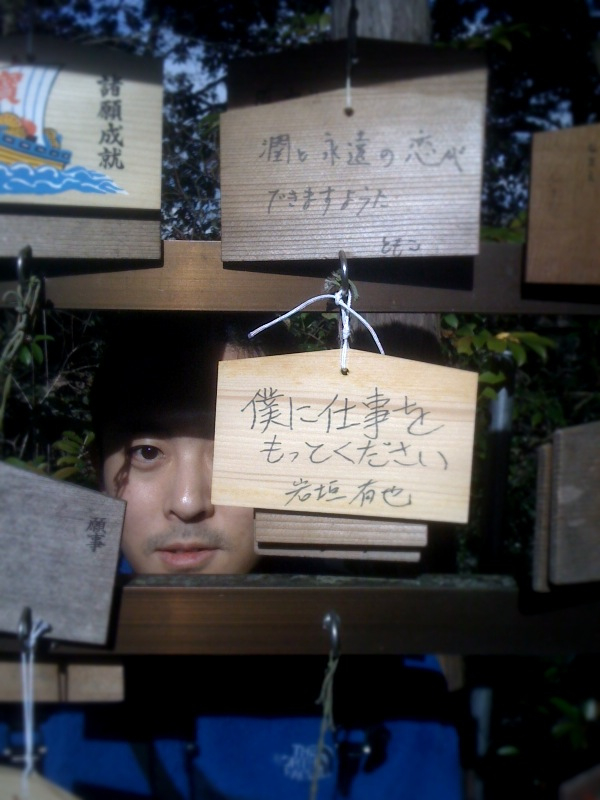 諸願成就
潤と永遠の恋が
できますように
ともこ
僕に仕事を
もってください
岩垣有也
願事